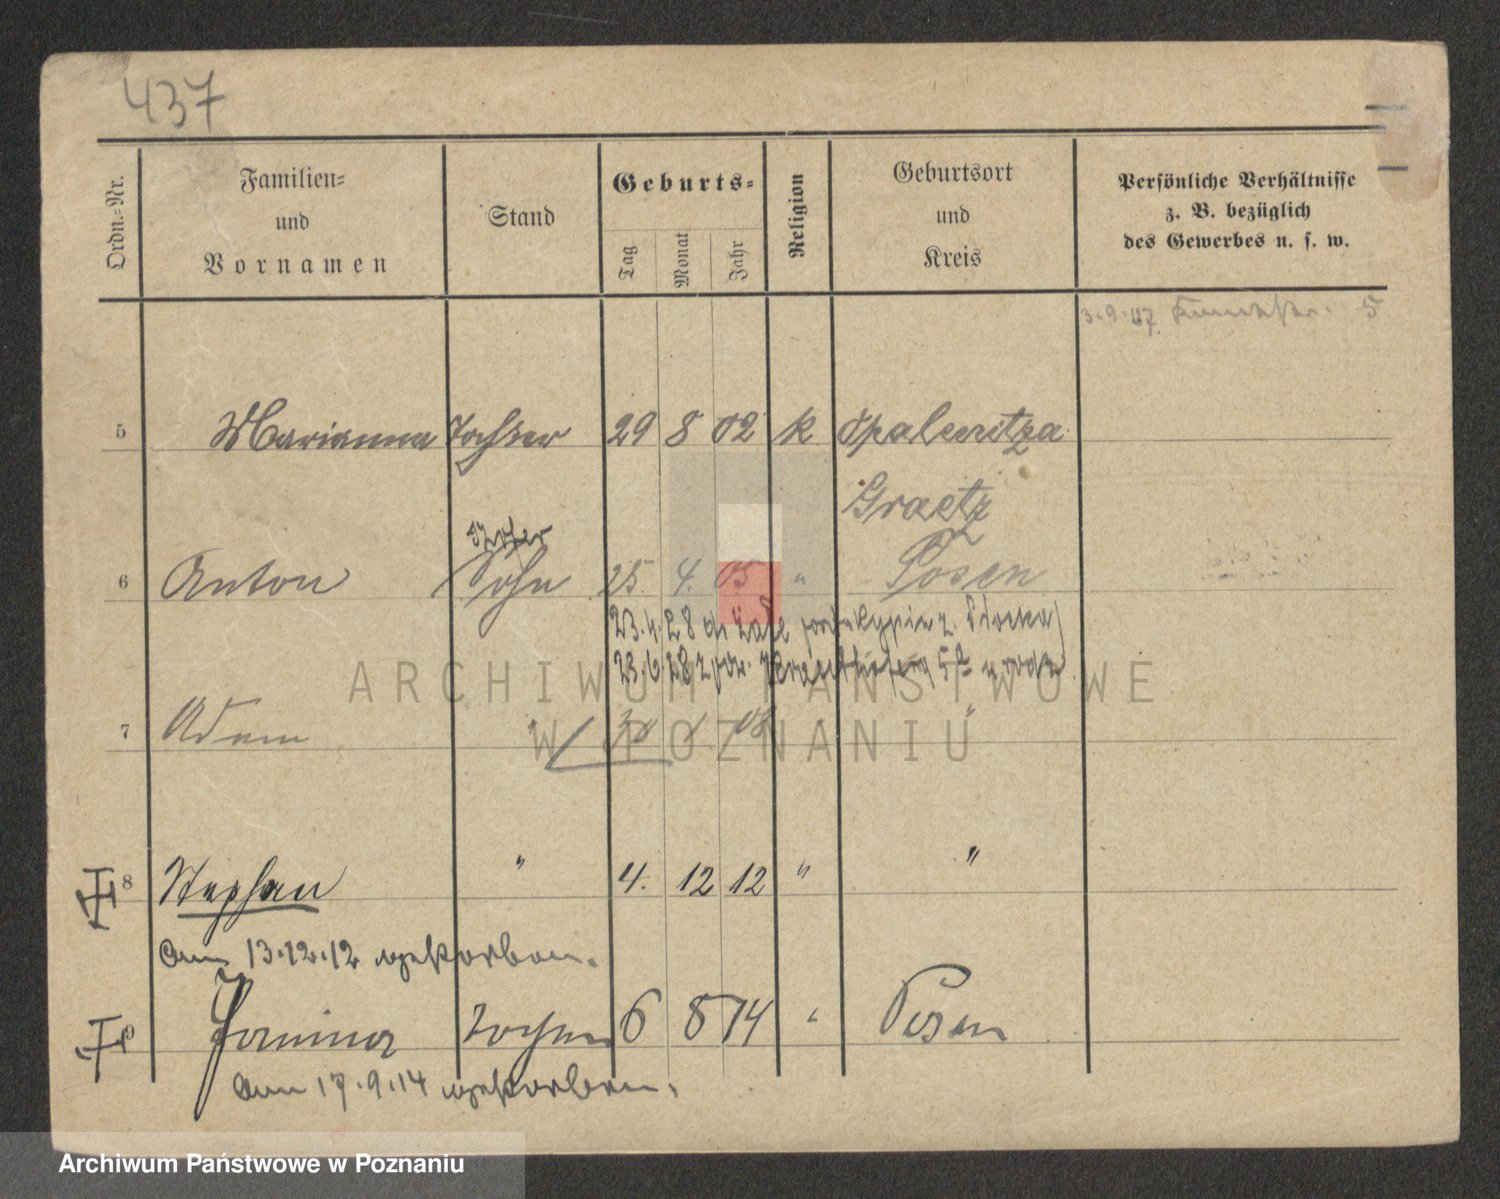 437
Ordn.-Nr.
Familien-
und
Vornamen
Stand
Geburts-
Tag
Monat
Jahr
Religion
Geburtsort
und
Kreis
Persönliche Verhältnisse
z. B. bezüglich
des Gewerbes u. s. w.
3.9.
5
5 Marianna Tochter 29 8 02 k Opalenitza
Graetz
6 Anton Sohn 25. 4. 05 " Posen
23.4.28
23.6.28
7 Adam " "
ARCHIWUM PAŃSTWOWE
W POZNANIU
8 Stephan " 4. 12 12 " "
am 13.12.12 gestorben.
9 Janina Tochter 6 8 14 " Posen
am 17.9.14 gestorben.
Archiwum Państwowe w Poznaniu